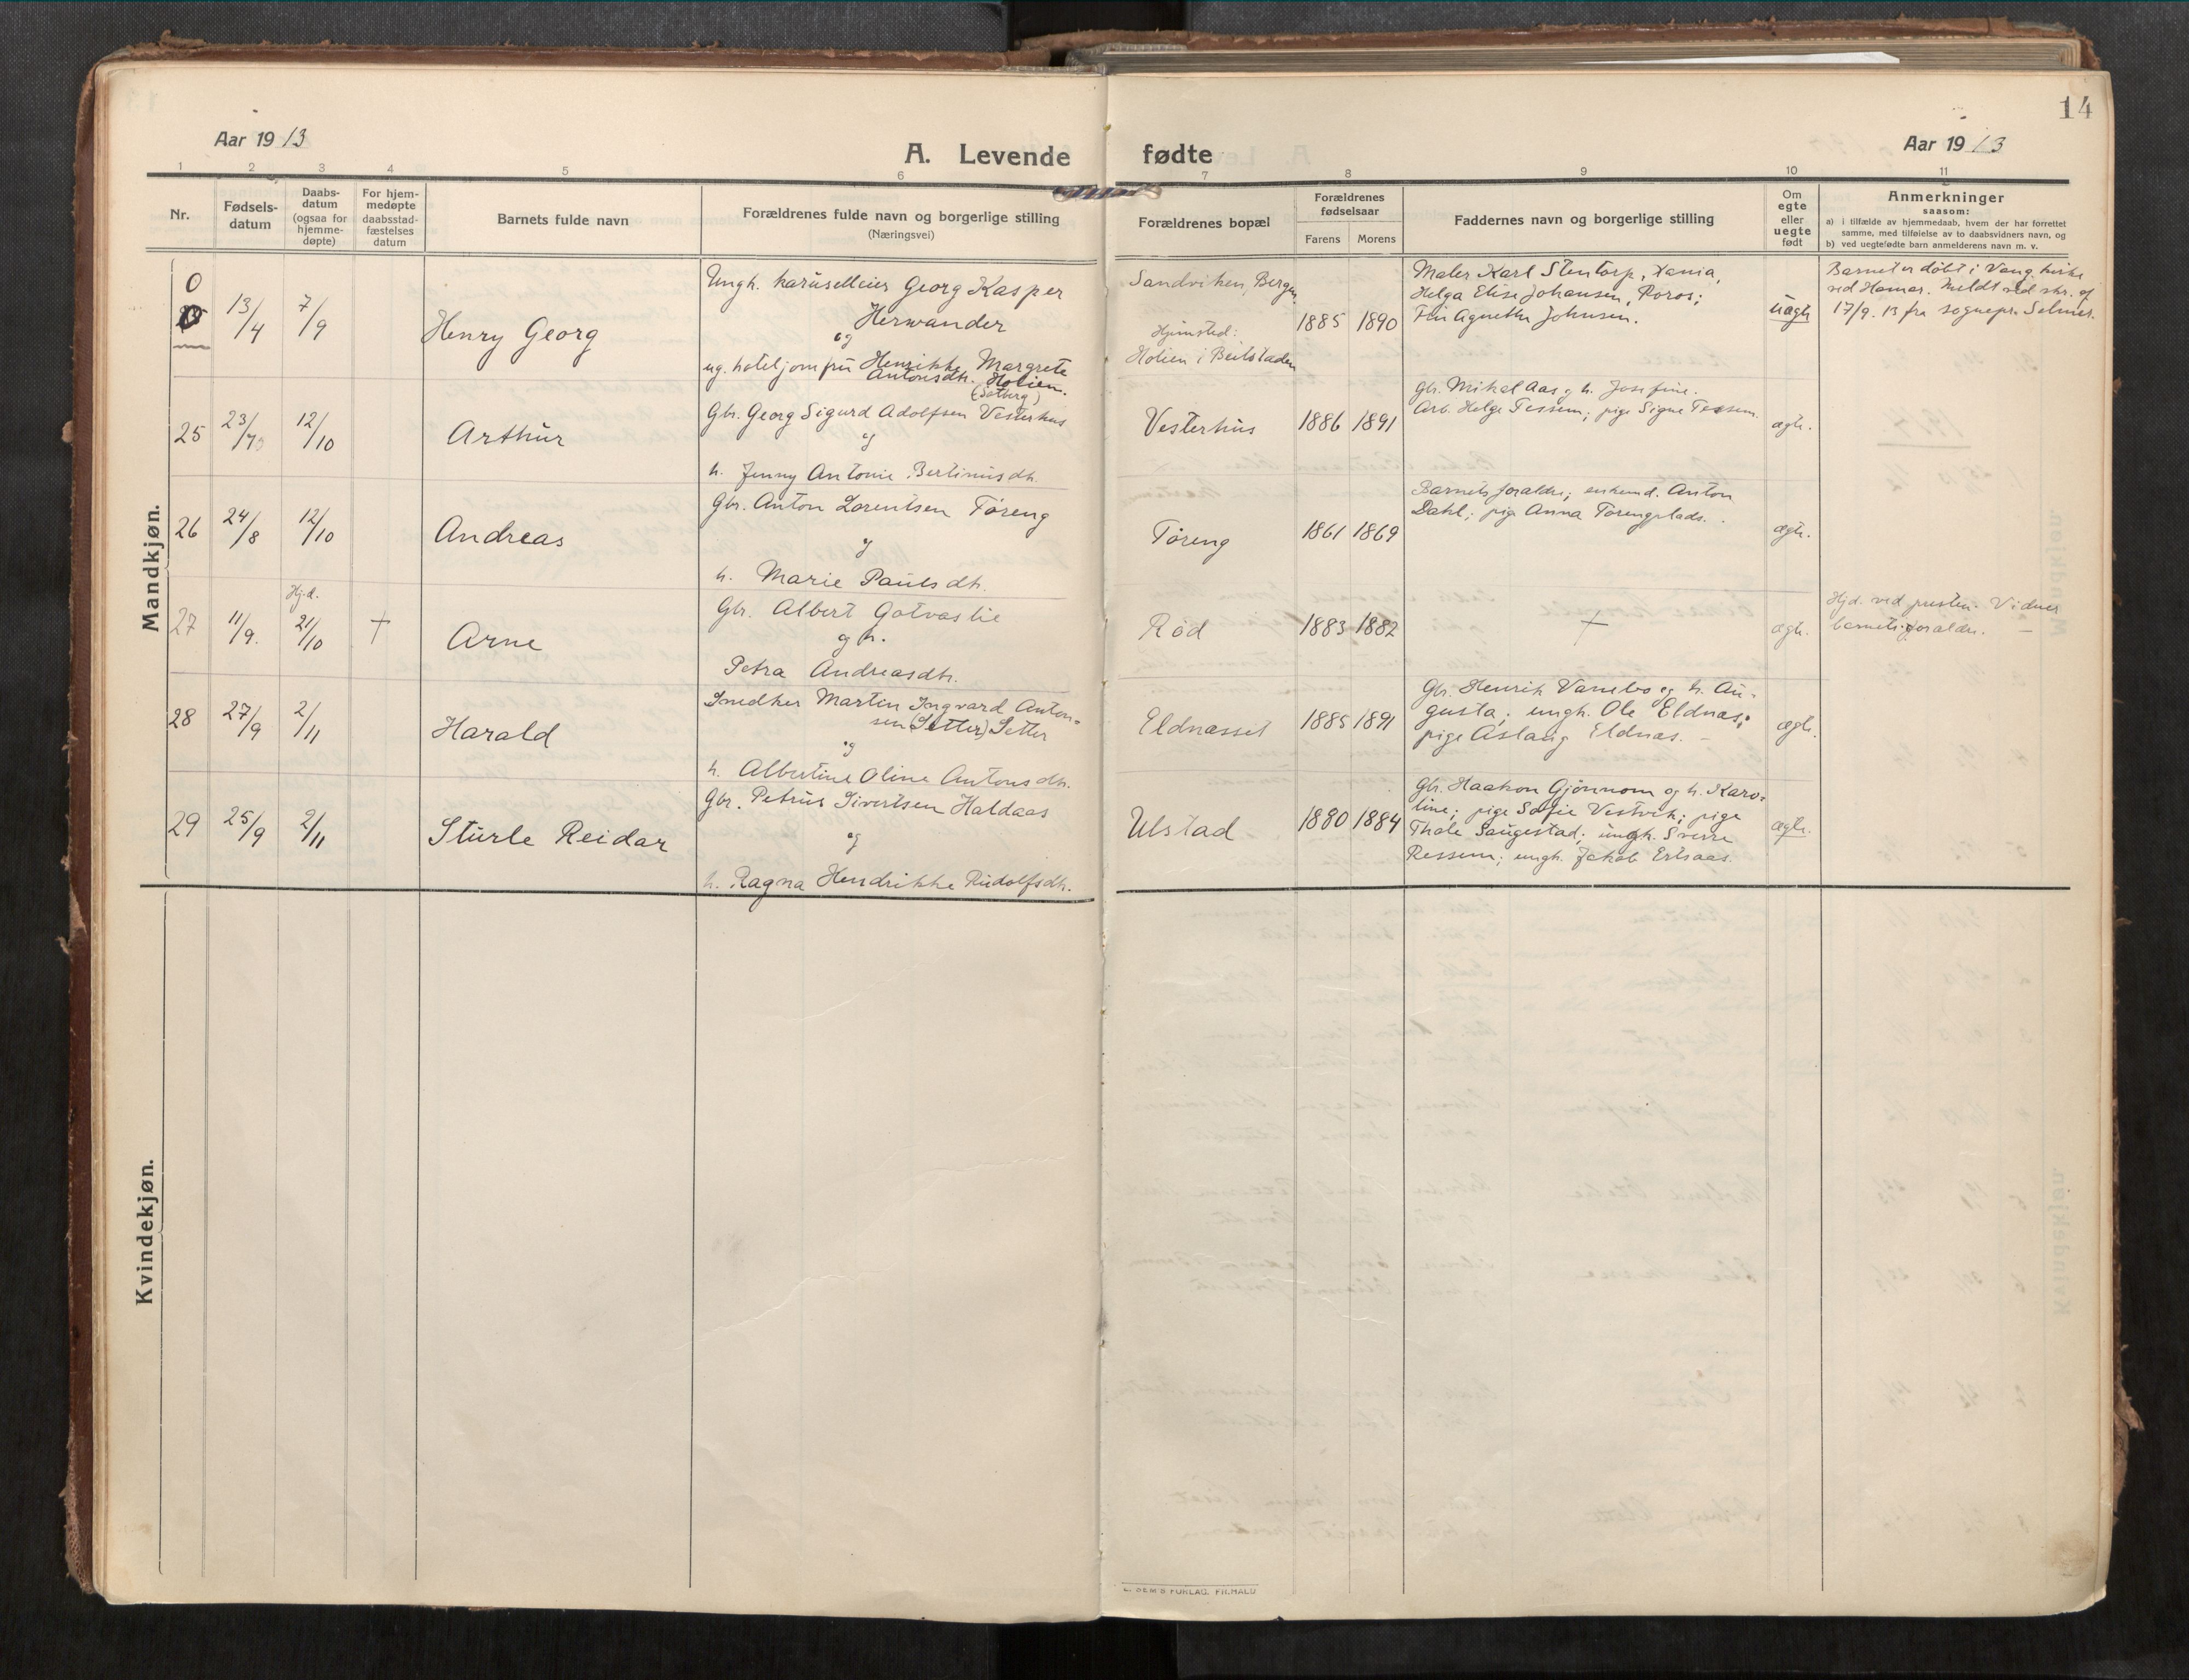 14
Aar 1913
Aar 1913
A. Levende fødte
1 2 3 4 5 6 7 8 9 10 11
Nr.
Fødsels-
datum
Daabs-
datum
(ogsaa for
hjemme-
døpte)
For hjem-
medøpte
daabsstad-
fæstelses
datum
Barnets fulde navn
Forældrenes fulde navn og borgerlige stilling
(Næringsvei)
Forældrenes bopæl
Forældrenes
fødselsaar
Farens Morens
Faddernes navn og borgerlige stilling
Om
egte
eller
uegte
født
Anmerkninger
saasom:
a) i tilfælde av hjemmedaab, hvem der har forrettet
samme, med tilføielse av to daabsvidners navn, og
b) ved uegtefødte barn anmelderens navn m. v.
Mandkjøn.
0
13/4
7/9
Henry Georg
Ungk. karuselleier Georg Kasper
Herwander
og
ug. hoteljomfru Henrikke Margrete
Antonsdtr. Holien.
(Solberg)
Sandviken, Bergen.
Hjemsted:
Holien i Beitstaden
1885 1890
Maler Karl Stentorp, Xania,
Helga Elise Johansen, Røros;
Agnethe Johnsen.
uægte
Barnet er døbt i Vang kirke
ved Hamar. Meldt ved skr. af
17/9. 13 fra sognepr. Selmer.
25
23/
12/10
Arthur
Gbr. Georg Sigurd Adolfsen Vesterhus
og
h. Jenny Antonie Bertinusdtr.
Vesterhus
1886 1891
Gbr. Mikal Aas og h. Josefine.
Arb. Helge Tessem; pige Signe Tessem.
ægte.
26
24/8
12/10
Andreas
Gbr. Anton Lorentsen Tøreng
og
h. Marie Paulsdtr.
Tøreng
1861 1869
Barnets foræld­re; enkemd. Anton
Dahl; pige Anna Tørengplads.
ægte.
27
11/9.
Hj.d.
21/10
†
Arne
Gbr. Albert Gotvaslie
og h.
Petra Andreasdtr.
Rød
1883 1882
†
ægte.
Hjd. ved presten. Vidner
barnets forældre. —
28
27/9
2/11
Harald
Snedker Martin Ingvard Anton-
sen (Setter) Setter
og
h. Albertine Oline Antonsdtr.
Eldnæsset
1885 1891
Gbr. Henrik Vanebo og h. Au-
gusta; ungk. Ole Eldnæs;
pige Aslaug Eldnæs. —
ægte.
29
25/9
2/11
Sturle Reidar
Gbr. Petrus Sivertsen Haldaas
og
h. Ragna Hendrikke Rudolfsdtr.
Ulstad
1880 1884
Gbr. Haakon Gjønnom og h. Karo-
line; pige Sofie Vestvik; pige
Thale Saugestad; ungk. Sverre
Ressem; ungk. Jakob Ertsaas.
ægte.
Kvindekjøn.
E. SEM'S FORLAG, FR.HALD